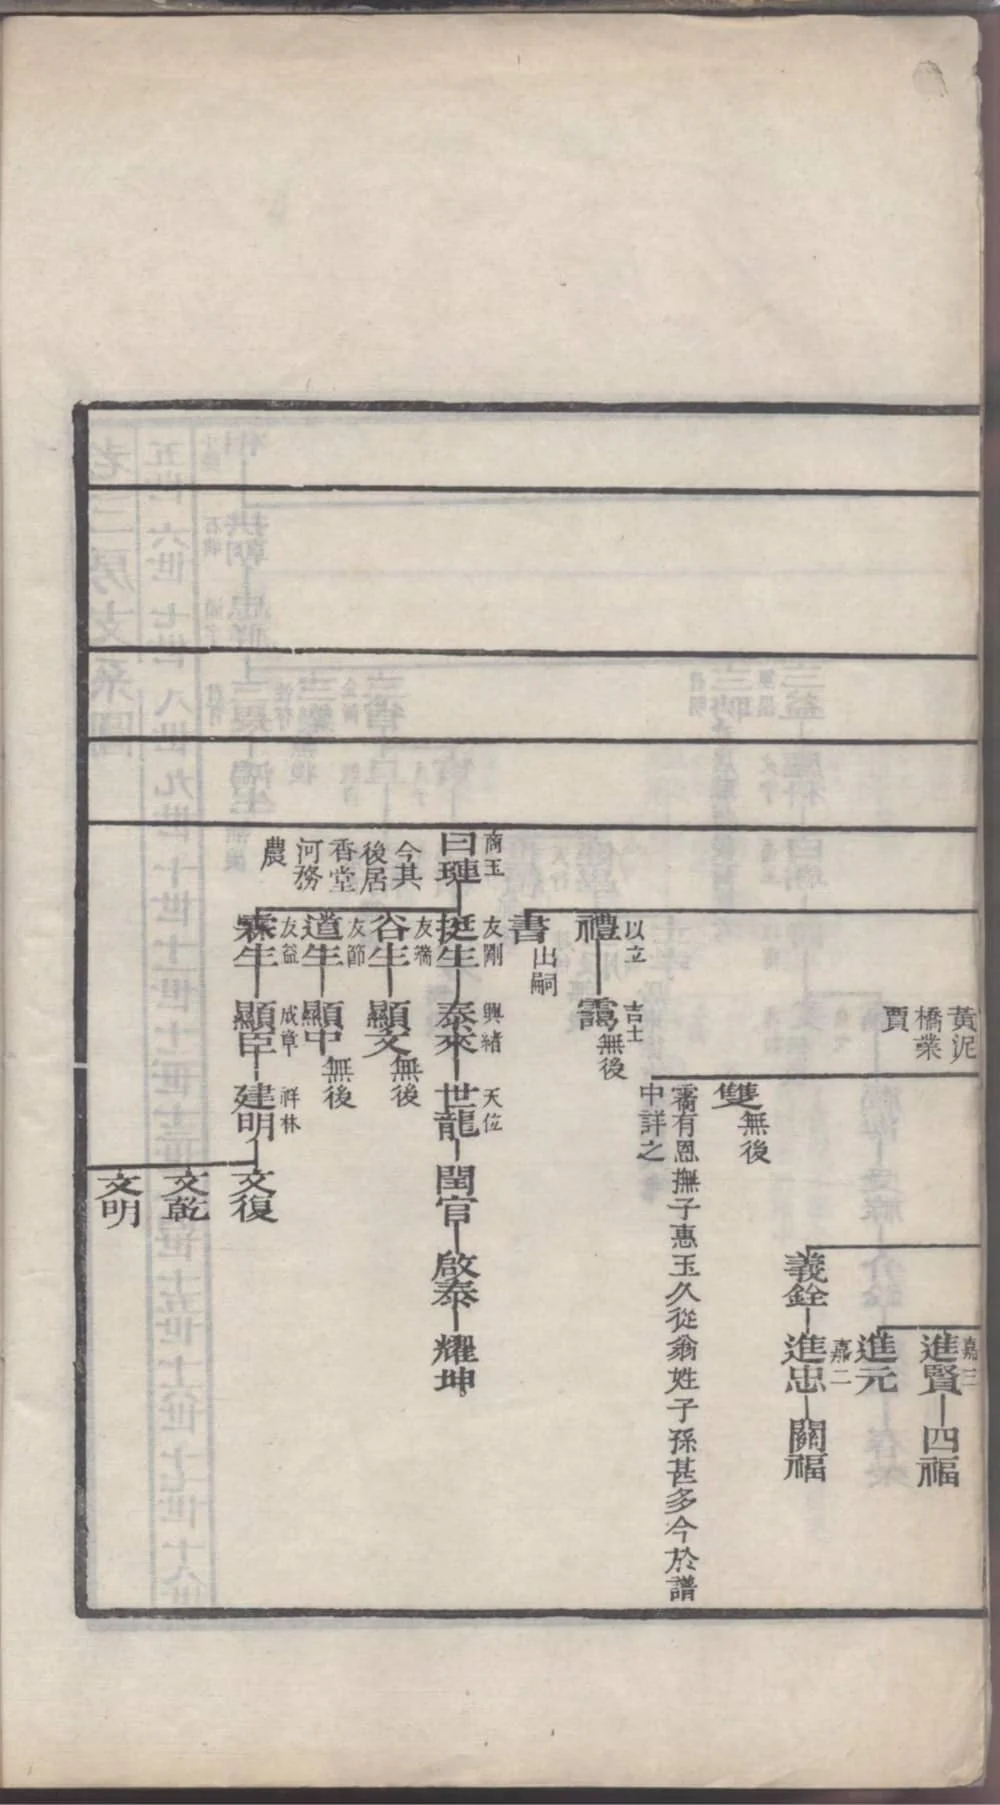 黃泥
橋業
賈
嘉三
進賢
四福
進元
嘉二
義銓
進忠
關福
雙
無後
霱有恩撫子惠玉久從翁姓子孫甚多今於譜
中詳之
以立
禮
吉士
靄
無後
書
出嗣
商玉
曰璉
今其
後居
香堂
河務
農
友剛
挺生
興緒
泰來
天位
世龍
閏官
啟泰
耀坤
谷生
顯文
無後
友節
道生
顯中
無後
友益
霖生
成章
顯臣
祥林
建明
文復
文乾
文明